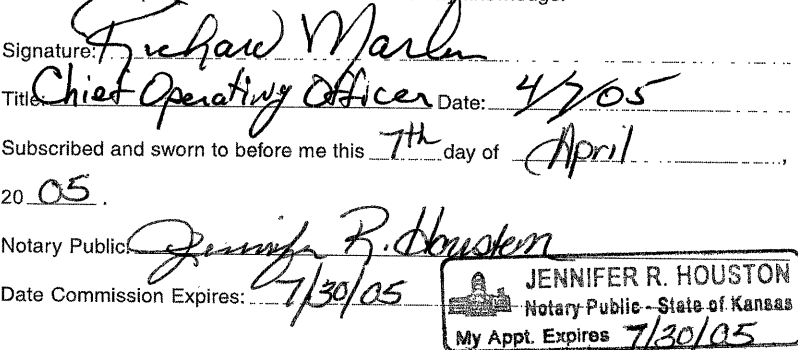 Signature: Richard Marlin
Title: Chief Operating Officer Date: 4/7/05
Subscribed and sworn to before me this 7th day of April,
20 05.
Notary Public: Jennifer R. Houston
Date Commission Expires: 7/30/05
JENNIFER R. HOUSTON
Notary Public - State of Kansas
My Appt. Expires 7/30/05